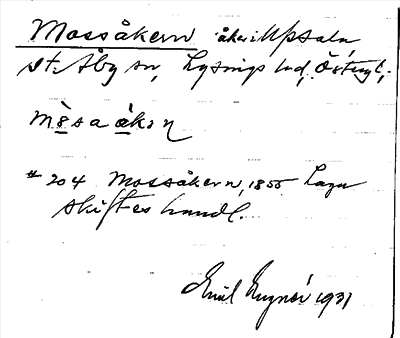 Mossåkern åker i Upsala
St. Åby sn, Lysings hd, Östergl.
mòsaåkən
# 204 Mossåkern, 1855 Laga
skifteshandl.
Emil 1931